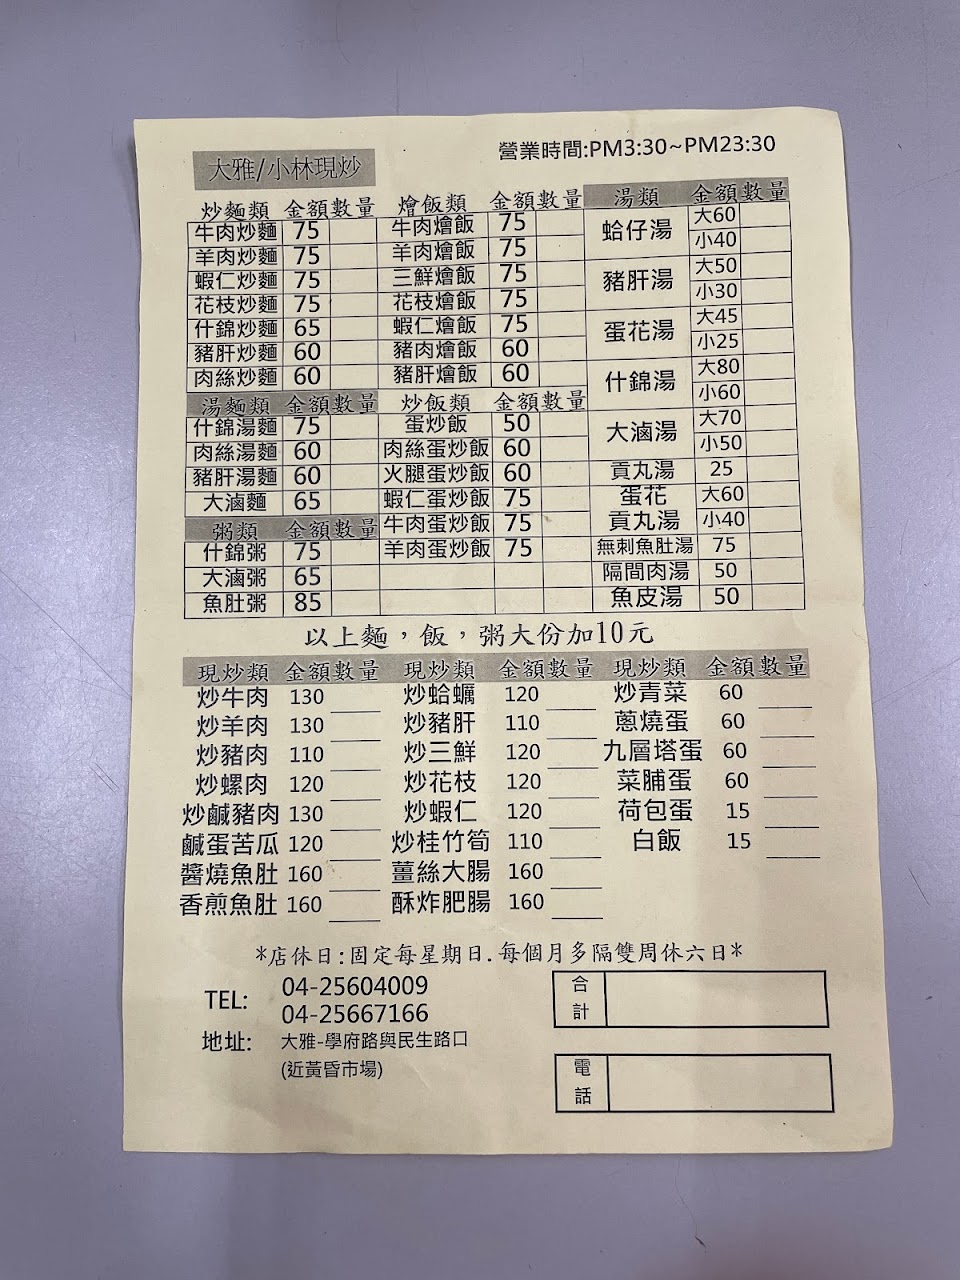 大雅/小林現炒
營業時間:PM3:30~PM23:30
炒麵類 金額 數量
牛肉炒麵 75
羊肉炒麵 75
蝦仁炒麵 75
花枝炒麵 75
什錦炒麵 65
豬肝炒麵 60
肉絲炒麵 60
湯麵類 金額 數量
什錦湯麵 75
肉絲湯麵 60
豬肝湯麵 60
大滷麵 65
粥類 金額 數量
什錦粥 75
大滷粥 65
魚肚粥 85
燴飯類 金額 數量
牛肉燴飯 75
羊肉燴飯 75
三鮮燴飯 75
花枝燴飯 75
蝦仁燴飯 75
豬肉燴飯 60
豬肝燴飯 60
炒飯類 金額 數量
蛋炒飯 50
肉絲蛋炒飯 60
火腿蛋炒飯 60
蝦仁蛋炒飯 75
牛肉蛋炒飯 75
羊肉蛋炒飯 75
湯類 金額 數量
蛤仔湯 大60
小40
豬肝湯 大50
小30
蛋花湯 大45
小25
什錦湯 大80
小60
大滷湯 大70
小50
貢丸湯 25
蛋花 大60
貢丸湯 小40
無刺魚肚湯 75
隔間肉湯 50
魚皮湯 50
以上麵，飯，粥大份加10元
現炒類 金額 數量
炒牛肉 130
炒羊肉 130
炒豬肉 110
炒螺肉 120
炒鹹豬肉 130
鹹蛋苦瓜 120
醬燒魚肚 160
香煎魚肚 160
現炒類 金額 數量
炒蛤蠣 120
炒豬肝 110
炒三鮮 120
炒花枝 120
炒蝦仁 120
炒桂竹筍 110
薑絲大腸 160
酥炸肥腸 160
現炒類 金額 數量
炒青菜 60
蔥燒蛋 60
九層塔蛋 60
菜脯蛋 60
荷包蛋 15
白飯 15
*店休日:固定每星期日.每個月多隔雙周休六日*
TEL: 04-25604009
04-25667166
地址: 大雅-學府路與民生路口
(近黃昏市場)
合計
電話